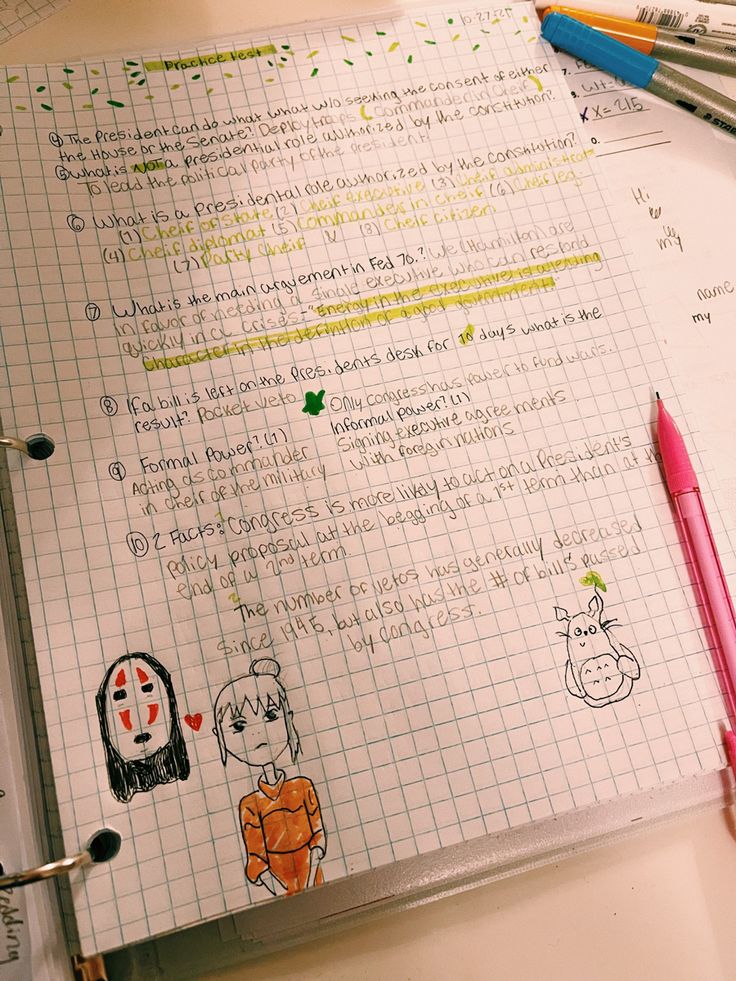 10.27.21
Practice test
④ The President can do what what w/o seeking the consent of either
the House or the Senate? Deploy troops (Commander in Cheif)
⑤ What is NOT a presidential role authorized by the constitution?
To lead the political party of the president
⑥ What is a Presidental role authorized by the constitution?
(1) Cheif of state (2) Cheif executive (3) Cheif administrat
(4) Cheif diplomat (5) Commander in cheif (6) Cheif leg.
(7) Party Cheif (8) Cheif citizen
⑦ What is the main arguement in Fed 70.? We (Hamilton) are
in favor of needing a single executive who can respond
quickly in a crisis - "Energy in the executive is a leading
character in the definition of a good government"
⑧ If a bill is left on the Presidents desk for 10 days what is the
result? Pocket veto
Only congress has power to fund wars.
⑨ Formal Power? (1)
Acting as commander
in cheif of the military
Informal power? (1)
Signing executive agreements
with foregin nations
⑩ 2 Facts: Congress is more likely to act on a President's
policy proposal at the begging of a 1st term than at the
end of a 2nd term.
The number of vetos has generally decreased
since 1945, but also has the # of bill's passed
by congress.
7.
8.
x = 215
Hi
my
name
my
eading
STAB